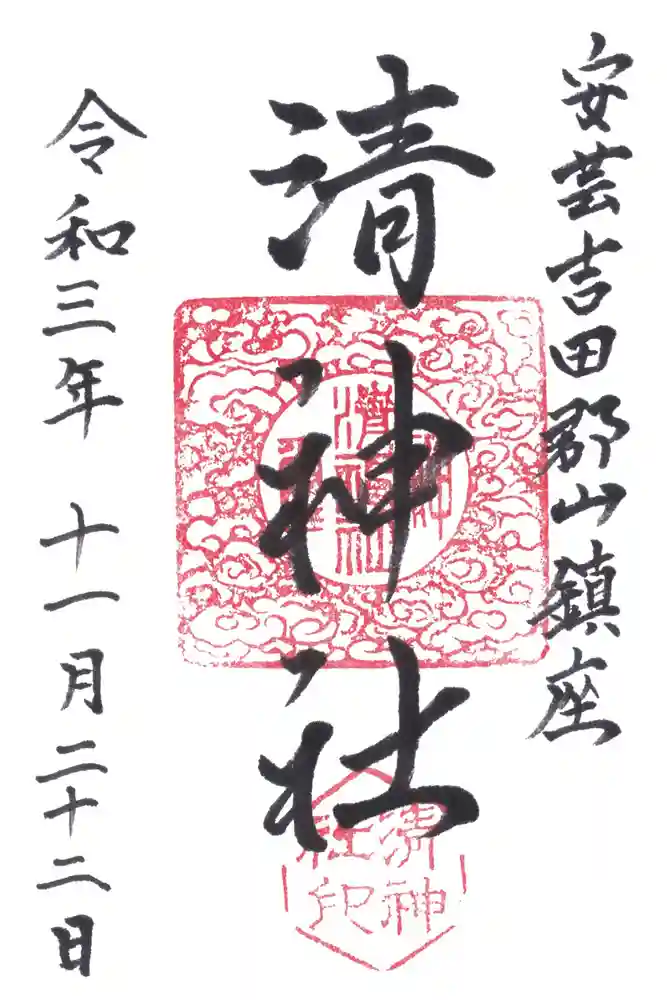 安芸吉田郡山鎮座
清神社
令和三年 十一月二十二日
清神
社印